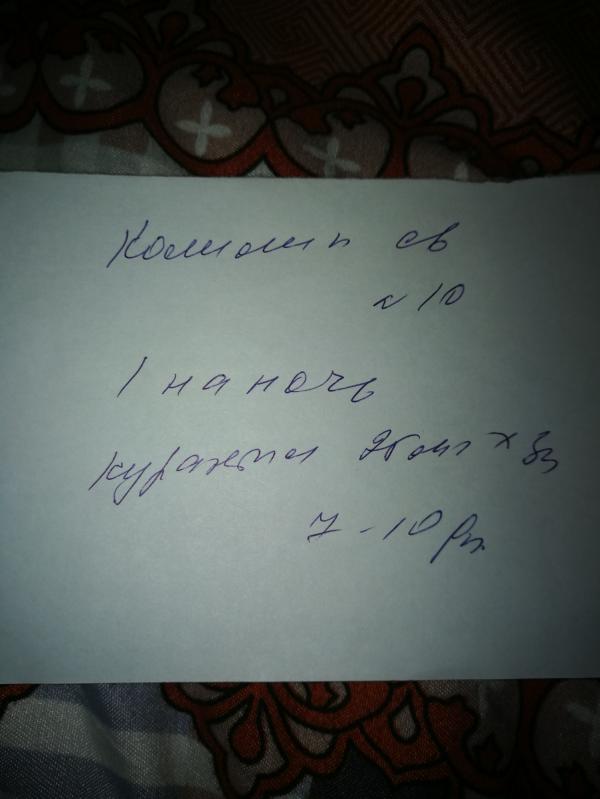 Колиогин св
№10
1 на ночь
курантил 25 мг × 3
7-10 дн.